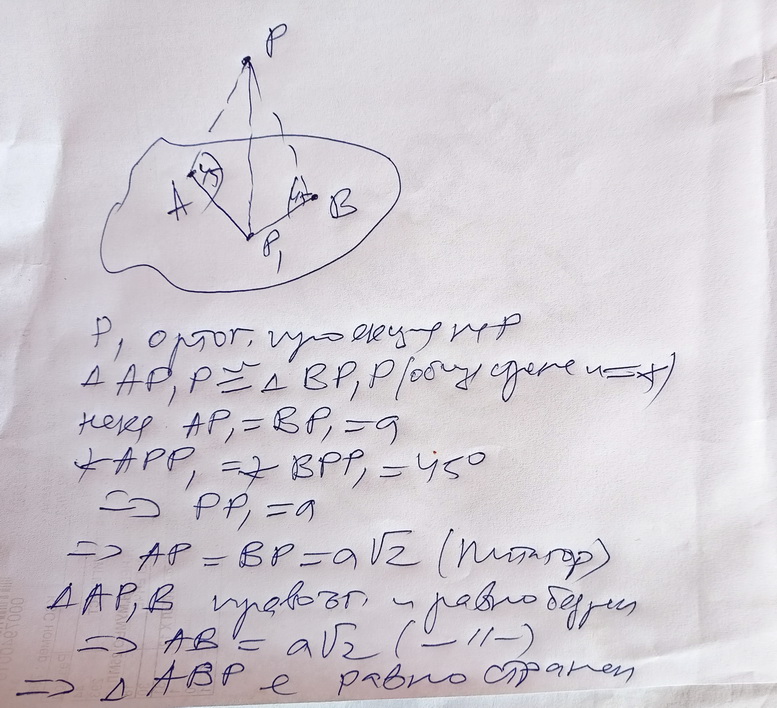 P
45
45
A
B
P₁
P₁ ортог. проекция на P
△ AP₁P ≅ △ BP₁P (общ сторона и = ∢)
нека AP₁ = BP₁ = a
∢APP₁ = ∢ BPP₁ = 45°
=> PP₁ = a
=> AP = BP = a√2 (Питагор)
△AP₁B правоъг. и равнобедрен
=> AB = a√2 (–//–)
=> △ ABP е равностранен